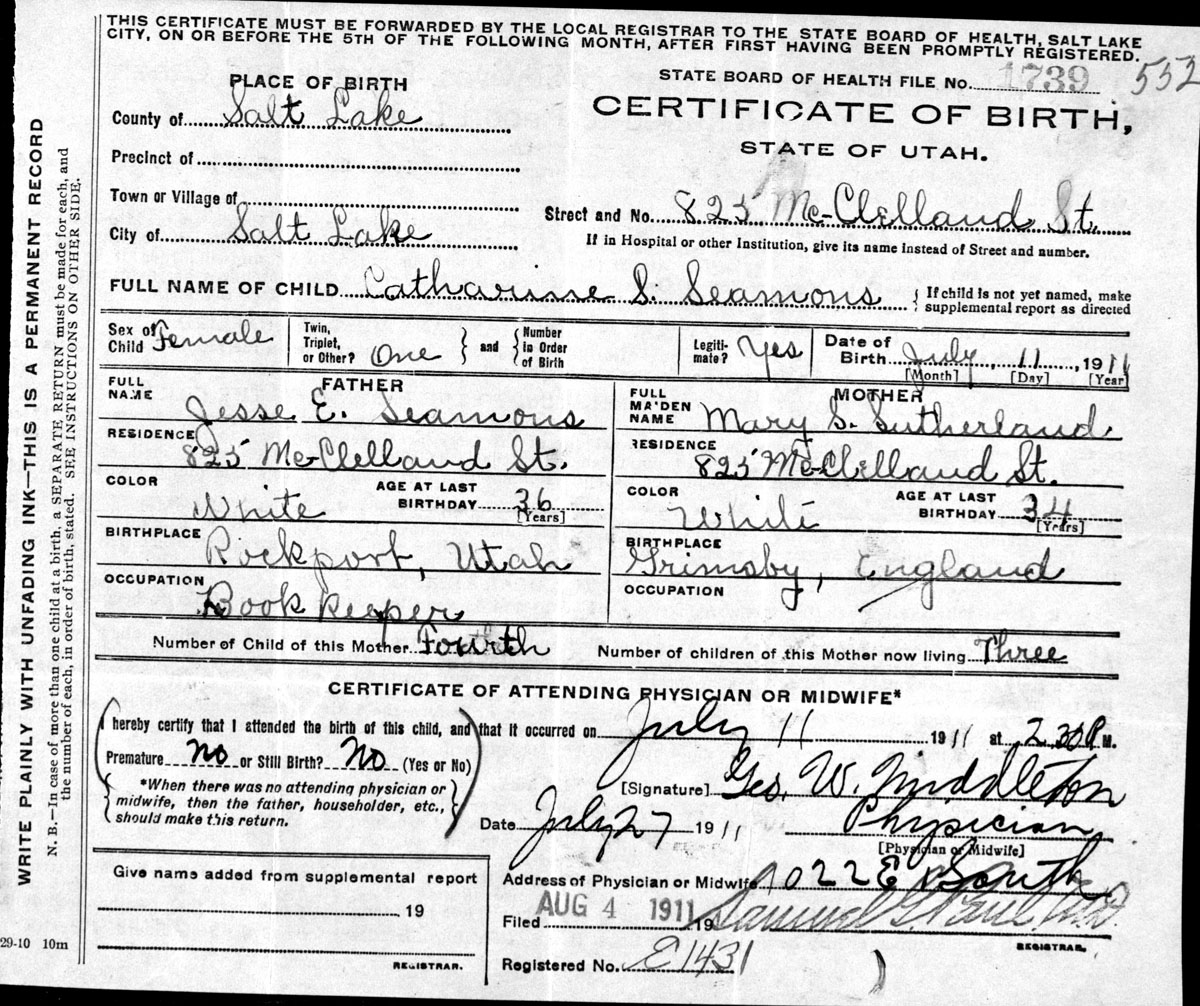 THIS CERTIFICATE MUST BE FORWARDED BY THE LOCAL REGISTRAR TO THE STATE BOARD OF HEALTH, SALT LAKE
CITY, ON OR BEFORE THE 5TH OF THE FOLLOWING MONTH, AFTER FIRST HAVING BEEN PROMPTLY REGISTERED.
PLACE OF BIRTH
STATE BOARD OF HEALTH FILE No. 1739 552
County of Salt Lake
CERTIFICATE OF BIRTH,
STATE OF UTAH.
Precinct of
Town or Village of
Street and No. 825 McClelland St.
City of Salt Lake
If in Hospital or other Institution, give its name instead of Street and number.
FULL NAME OF CHILD Catharine S. Seamons { If child is not yet named, make
supplemental report as directed
Sex of Child Female
Twin, Triplet, or Other? One } and { Number in Order of Birth
Legiti-mate? Yes
Date of Birth July, 11, 1911
[Month] [Day] [Year]
FATHER
FULL NAME Jesse E. Seamons
RESIDENCE 825 McClelland St.
COLOR White AGE AT LAST BIRTHDAY 36 [Years]
BIRTHPLACE Rockport, Utah
OCCUPATION Book Keeper
MOTHER
FULL MAIDEN NAME Mary S. Sutherland
RESIDENCE 825 McClelland St.
COLOR White AGE AT LAST BIRTHDAY 34 [Years]
BIRTHPLACE Grimsby, England
OCCUPATION
Number of Child of this Mother Fourth Number of children of this Mother now living Three
CERTIFICATE OF ATTENDING PHYSICIAN OR MIDWIFE*
I hereby certify that I attended the birth of this child, and that it occurred on July 11 1911 at 2.30 P M.
Premature No or Still Birth? No (Yes or No)
*When there was no attending physician or
midwife, then the father, householder, etc.,
should make this return.
[Signature] Geo. W. Middleton
Date July 27 1911 Physician
[Physician or Midwife]
Address of Physician or Midwife 1022 E South
Filed AUG 4 1911 19 Samuel G.
REGISTRAR.
Registered No. E1431
Give name added from supplemental report
19
REGISTRAR.
29-10 10m
WRITE PLAINLY WITH UNFADING INK—THIS IS A PERMANENT RECORD
N. B.—In case of more than one child at a birth, a SEPARATE RETURN must be made for each, and
the number of each, in order of birth, stated. SEE INSTRUCTIONS ON OTHER SIDE.